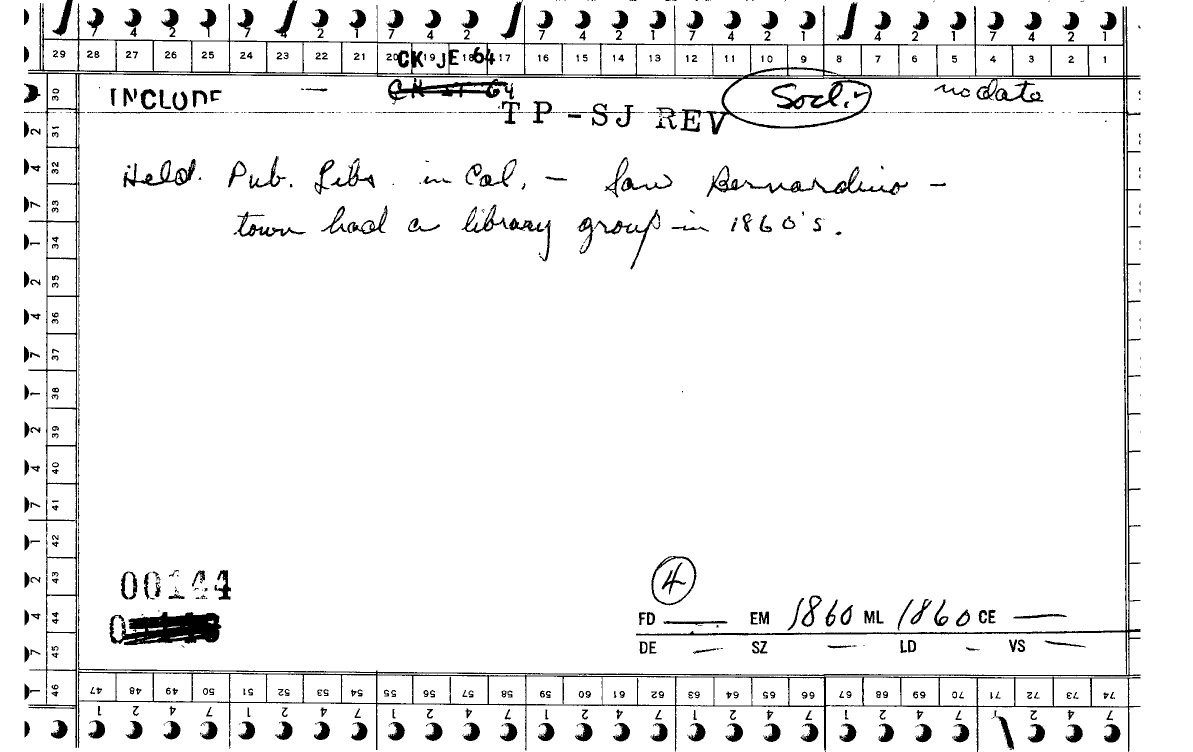 7 4 2 1 7 4 2 1 7 4 2 7 4 2 1 7 4 2 1 7 4 2 1 7 4 2 1
29 28 27 26 25 24 23 22 21 20 19 18 17 16 15 14 13 12 11 10 9 8 7 6 5 4 3 2 1
CK JE 64
INCLUDE — Socl. no date
TP-SJ REV
Held. Pub. Libs. in Cal. - San Bernardino -
town had a library group in 1860's.
30
31
32
33
34
35
36
37
38
39
40
41
42
43
44
45
46
00144
4
FD — EM 1860 ML 1860 CE —
DE — SZ — LD - VS —
47 48 49 50 51 52 53 54 55 56 57 58 59 60 61 62 63 64 65 66 67 68 69 70 71 72 73 74
1 2 4 7 1 2 4 7 1 2 4 7 1 2 4 7 1 2 4 7 1 2 4 7 1 2 4 7